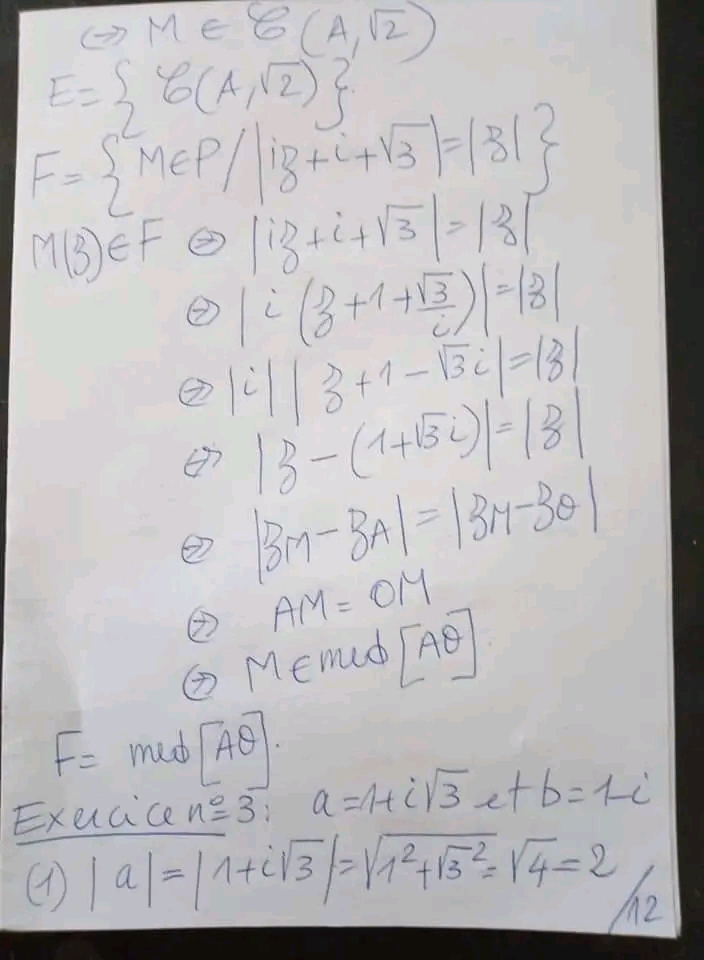 ⇔ M ∈ 𝒞(A,√2)
E = { 𝒞(A,√2) }
F = { M∈P / |iz+i+√3| = |z| }
M(z)∈F ⇔ |iz+i+√3| = |z|
⇔ |i (z+1+√3/i)| = |z|
⇔ |i| | z+1-√3i| = |z|
⇔ |z-(1+√3i)| = |z|
⇔ |zM-zA| = |zM-zO|
⇔ AM = OM
⇔ M∈med [AO]
F= med [AO].
Exercice n°3: a=1+i√3 et b=1-i
(1) |a| = |1+i√3| = √1²+√3² = √4 = 2
/12